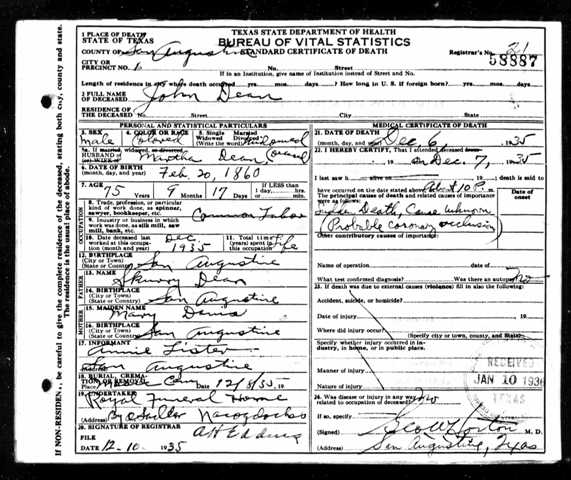 TEXAS STATE DEPARTMENT OF HEALTH
BUREAU OF VITAL STATISTICS
STANDARD CERTIFICATE OF DEATH
1 PLACE OF DEATH
STATE OF TEXAS
COUNTY OF San Augustine
Registrar's No. 21
58887
CITY OR PRECINCT NO. 6 No. Street
If in an Institution, give name of Institution instead of Street and No.
Length of residence in city where death occurred yrs. mos. days. How long in U. S. if foreign born? yrs. mos. days.
2 FULL NAME OF DECEASED John Dean
RESIDENCE OF THE DECEASED No. Street City State
PERSONAL AND STATISTICAL PARTICULARS
3. SEX Male
4. COLOR OR RACE Colored
5. Single Married Widowed Divorced (Write the word) Widowed
5a. If married, widowed, or divorced HUSBAND OF (or) WIFE OF Martha Dean
6. DATE OF BIRTH (month, day, and year) Feb 20, 1860
7. AGE 75 Years 9 Months 17 Days If LESS than 1 day, hrs. min.
OCCUPATION
8. Trade, profession, or particular kind of work done, as spinner, sawyer, bookkeeper, etc. Common Labor
9. Industry or business in which work was done, as silk mill, saw mill, bank, etc.
10. Date deceased last worked at this occupation (month and year) Dec 1935
11. Total time (years) spent in this occupation life
12. BIRTHPLACE (City or Town) (State or Country) San Augustine
FATHER
13. NAME Dean
14. BIRTHPLACE (City or Town) (State or Country) San Augustine
MOTHER
15. MAIDEN NAME Mary Davis
16. BIRTHPLACE (City or Town) (State or Country) San Augustine
17 INFORMANT Annie Lister
San Augustine
18 BURIAL, CREMATION OR REMOVAL
Place Cem 12/8/35, 19
19. UNDERTAKER Royal Funeral Home
(Address) Nacogdoches
20. SIGNATURE OF REGISTRAR A H Eddins
FILE DATE 12-10-1935
MEDICAL CERTIFICATE OF DEATH
21. DATE OF DEATH (month, day, and year) Dec 6, 1935
22. I HEREBY CERTIFY, That I attended deceased from
on Dec. 7, 1935
I last saw h alive on , 19 death is said to
have occurred on the date stated above, at About 10 P. m.
The principal causes of death and related causes of importance were as follows:
Date of onset
Sudden Death, Cause unknown
(Probable coronary occlusion)
Other contributory causes of importance:
Name of operation
What test confirmed diagnosis? Was there an autopsy? No
23. If death was due to external causes (violence) fill in also the following:
Accident, suicide, or homicide?
Date of injury , 19
Where did injury occur?
(Specify city or town, county, and State)
Specify whether injury occurred in industry, in home, or in public place.
Manner of injury
Nature of injury
RECEIVED
JAN 10 1936
TEXAS
24. Was disease or injury in any way related to occupation of deceased? No
If so, specify
(Signed) Horton M. D.
(Address) San Augustine, Texas